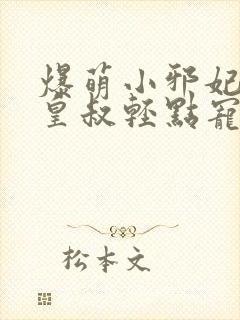 爆萌小邪妃
皇叔輕點寵
松本文